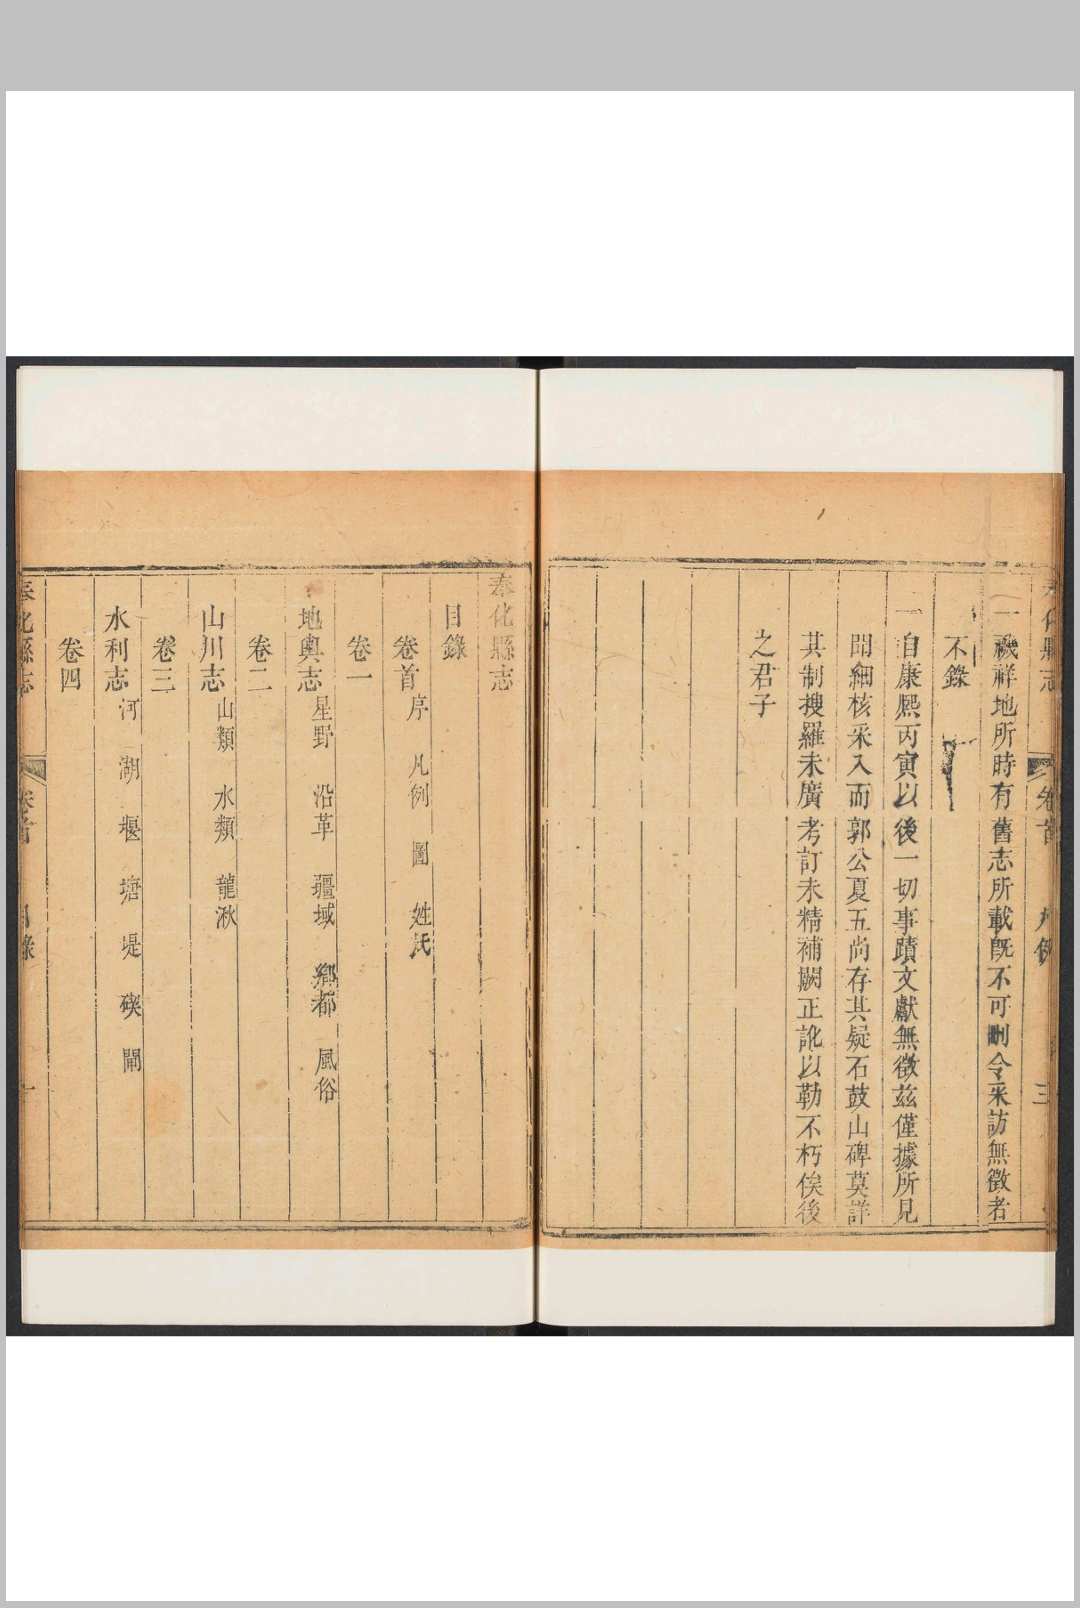 奉化縣志 卷首 凡例 三
一禨祥地所時有舊志所載旣不可刪今采訪無徵者
不錄
一自康熙丙寅以後一切事蹟文獻無徵茲僅據所見
聞細核采入而郭公夏五尚存其疑石鼓山碑莫詳
其制搜羅未廣考訂未精補闕正訛以勒不朽俟後
之君子
奉化縣志
目錄
卷首 序 凡例 圖 姓氏
卷一
地輿志 星野 沿革 疆域 鄉都 風俗
卷二
山川志 山類 水類 龍湫
卷三
水利志 河 湖 堰 塘 堤 碶 閘
卷四
奉化縣志 卷首 目錄 一